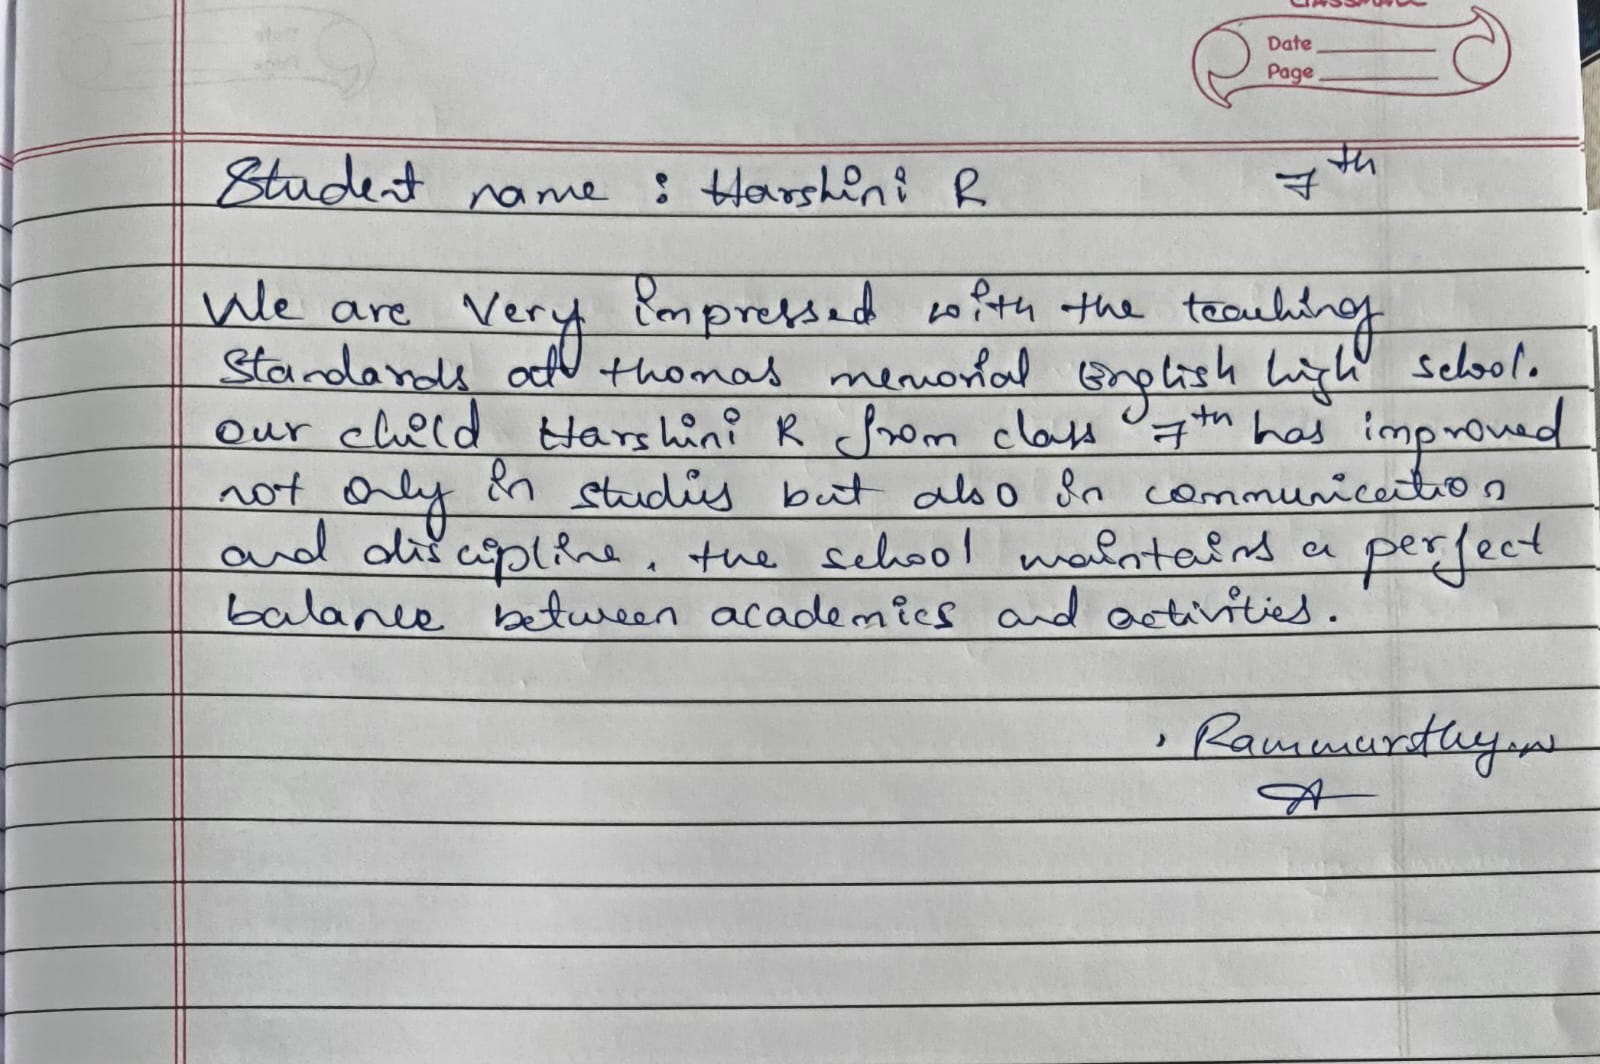 Date
Page
Student name : Harshini R 7th
We are Very impressed with the teaching
Standards at thomas memorial English high school.
our child Harshini R from class 7th has improved
not only in studies but also in communication
and discipline. the school maintains a perfect
balance between academics and activities.
Rammurthy.N